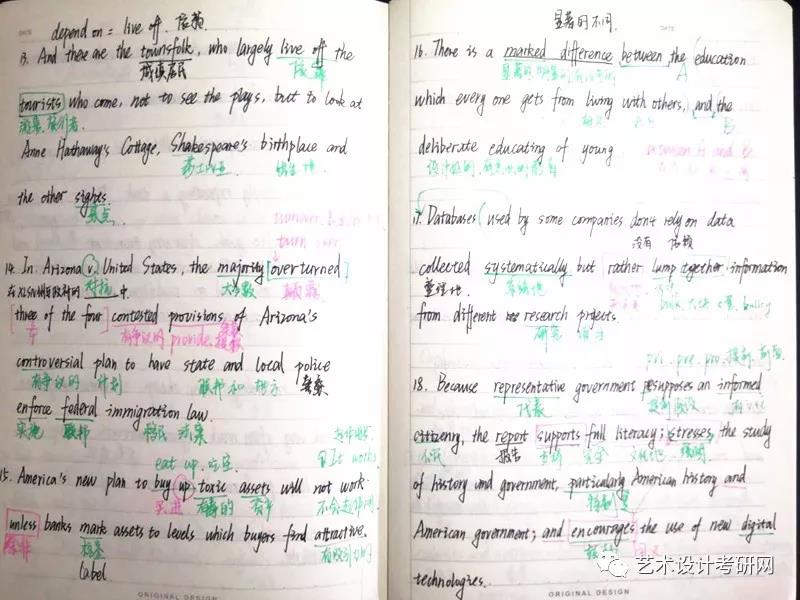 depend on = live off. 依赖.
13. And there are the townsfolk, who largely live off the
城镇居民 依靠
tourists who come, not to see the plays, but to look at
游客, 旅行者.
Anne Hathaway's Cottage, Shakespeare's birthplace and
莎士比亚 出生地.
the other sights.
景点.
turn over
14. In Arizona v. United States, the majority overturned
对抗 中. 大多数 推翻
three of the four contested provisions of Arizona's
有争议的 provide
controversial plan to have state and local police
有争议的 计划 联邦和 地方 警察
enforce federal immigration law.
实施 联邦 移民 政策
eat up. 吃完 It works
15. America's new plan to buy up toxic assets will not work
买进 有毒的 资产
unless banks mark assets to levels which buyers find attractive.
除非 标签
label
ORIGINAL DESIGN
显著的不同.
16. There is a marked difference between the education
显著的 A
which every one gets from living with others, and the
B
deliberate educating of young
between A and B
17. Databases used by some companies don't rely on data
没有 依赖
collected systematically but rather lump together information
整理地. 系统地
from different research projects.
研究 项目
pri. pre. pro. 提前
18. Because representative government presupposes an informed
代表
citizenry, the report supports full literacy; stresses the study
报告 支持 完全 强调
of history and government, particularly American history and
特别是
American government; and encourages the use of new digital
technologies.
ORIGINAL DESIGN
艺术设计考研网